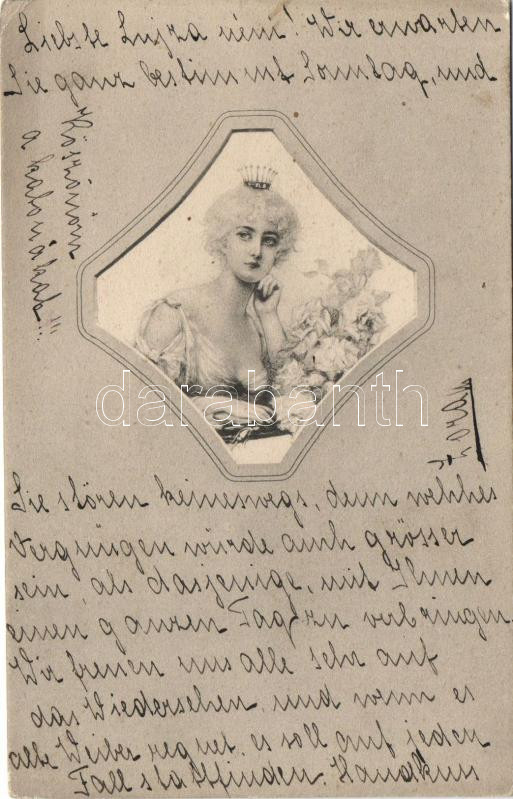 Liebste Lujza néni! Wir erwarten
Sie ganz bestimmt Sonntag, und
Köszönöm
a kabonákat!!!
darabanth
Sie stören keineswegs, denn welches
Vergnügen würde auch grösser
sein, als dasjenige, mit Ihnen
einen ganzen Tag zu verbringen.
Wir freuen uns alle sehr auf
das Wiedersehen und wenn es
alte Weiber regnet, es soll auf jeden
Fall stattfinden. Handkuss